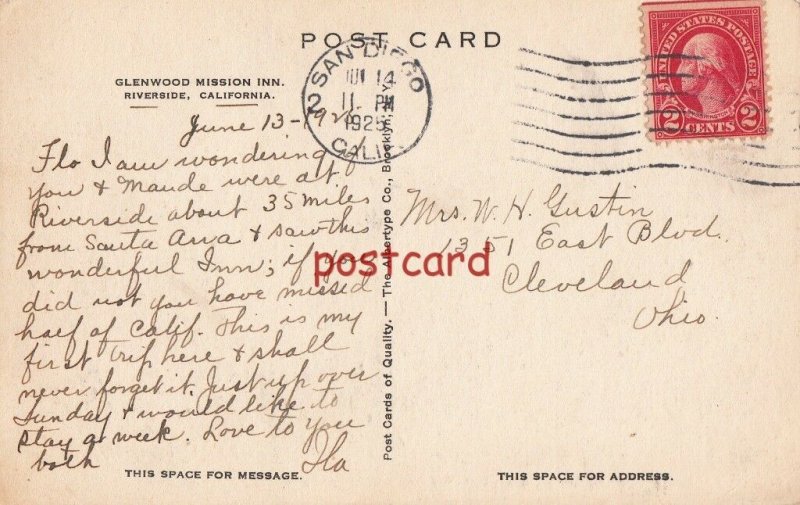 POST CARD
GLENWOOD MISSION INN.
RIVERSIDE, CALIFORNIA.
SAN DIEGO
CALIF.
JUN 14
11 - PM
1925
2
UNITED STATES POSTAGE
WASHINGTON
2 CENTS 2
June 13 - 192
Flo I am wondering if
you & Maude were at
Riverside about 35 miles
from Santa Ana & saw this
wonderful Inn; if you
did not you have missed
half of Calif. This is my
first trip here & shall
never forget it. Just up over
Sunday & would like to
stay a week. Love to you
both
Ila
Post Cards of Quality. — The Albertype Co., Brooklyn, N.Y.
Mrs. W. H. Gustin
1351 East Blvd.
Cleveland
Ohio.
postcard
THIS SPACE FOR MESSAGE.
THIS SPACE FOR ADDRESS.